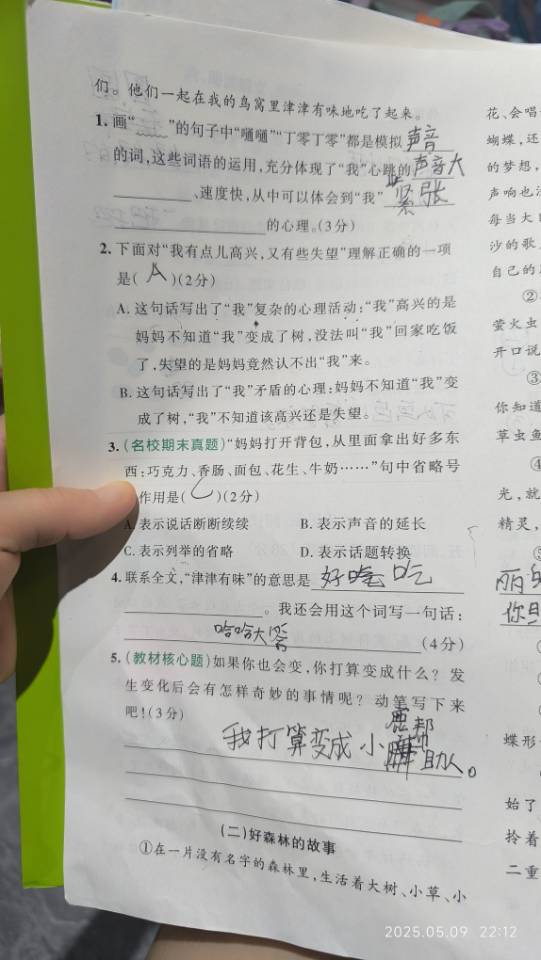 们。他们一起在我的鸟窝里津津有味地吃了起来。
1. 画“﹏﹏”的句子中“嗵嗵”“丁零丁零”都是模拟声音
的词,这些词语的运用,充分体现了“我”心跳的声音大
、速度快,从中可以体会到“我”紧张
的心理。(3分)
2. 下面对“我有点儿高兴,又有些失望”理解正确的一项
是( A )(2分)
A. 这句话写出了“我”复杂的心理活动:“我”高兴的是
妈妈不知道“我”变成了树,没法叫“我”回家吃饭
了,失望的是妈妈竟然认不出“我”来。
B. 这句话写出了“我”矛盾的心理:妈妈不知道“我”变
成了树,“我”不知道该高兴还是失望。
3. (名校期末真题)“妈妈打开背包,从里面拿出好多东
西:巧克力、香肠、面包、花生、牛奶……”句中省略号
作用是( C )(2分)
A. 表示说话断断续续 B. 表示声音的延长
C. 表示列举的省略 D. 表示话题转换
4. 联系全文,“津津有味”的意思是好吃
。我还会用这个词写一句话:
哈哈大答 (4分)
5. (教材核心题)如果你也会变,你打算变成什么?发
生变化后会有怎样奇妙的事情呢?动笔写下来
吧!(3分)
我打算变成小鹿帮助人。
(二)好森林的故事
①在一片没有名字的森林里,生活着大树、小草、小
花、会唱
蝴蝶,还
的梦想,
声响也
每当大
沙的歌
自己的
②
萤火虫
开口说
③
你知道
草虫鱼
④
光,就
精灵,
丽
你
蝶形
始了
拎着
二重
2025.05.09 22:12